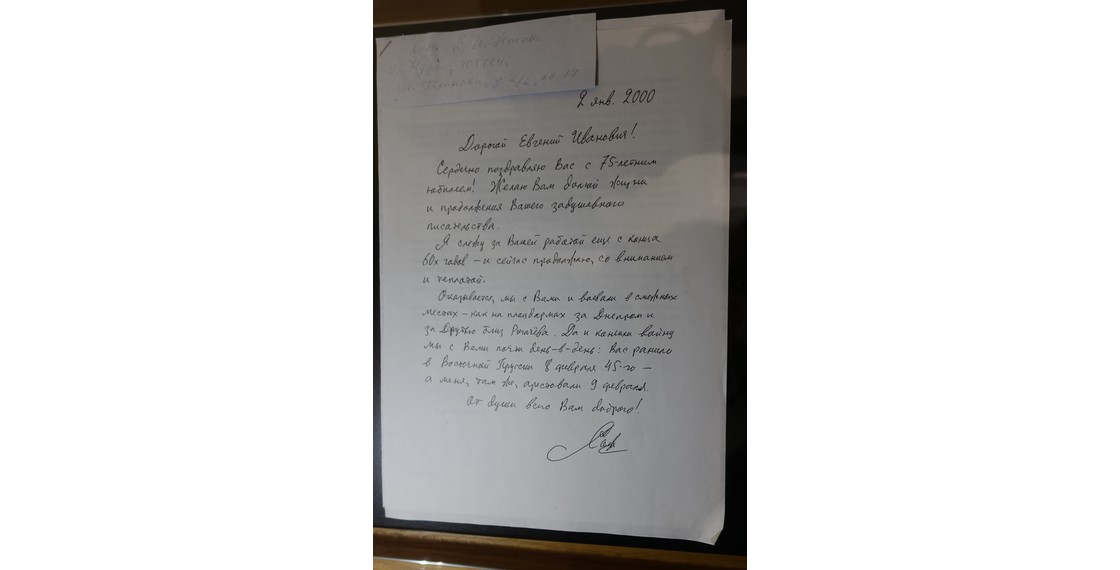 2 янв. 2000
Дорогой Евгений Иванович!
Сердечно поздравляю Вас с 75-летним
юбилеем! Желаю Вам долгой жизни
и продолжения Вашего задушевного
писательства.
Я слежу за Вашей работой еще с конца
60х годов – и сейчас продолжаю, со вниманием
и теплотой.
Оказывается, мы с Вами и воевали в смежных
местах – как на плацдармах за Днепром и
за Друтью близ Рогачёва. Да и кончили войну
мы с Вами почти день-в-день: Вас ранило
в Восточной Пруссии 8 февраля 45-го –
а меня, там же, арестовали 9 февраля.
От души всего Вам доброго!